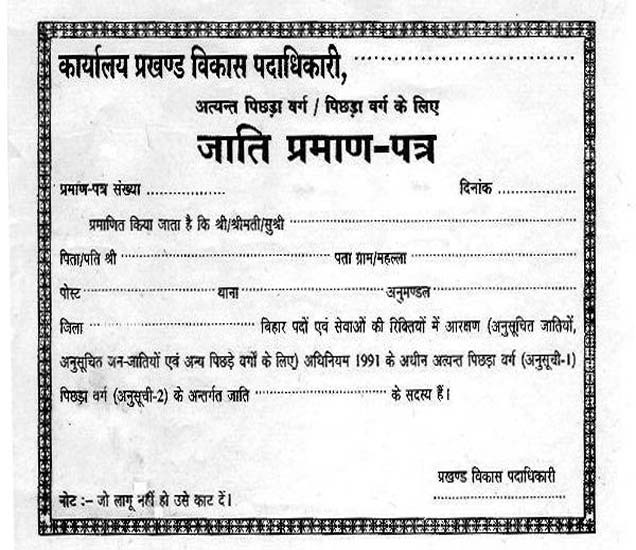 कार्यालय प्रखण्ड विकास पदाधिकारी, ..............................
अत्यन्त पिछड़ा वर्ग / पिछड़ा वर्ग के लिए
जाति प्रमाण-पत्र
प्रमाण-पत्र संख्या ................ दिनांक ................
प्रमाणित किया जाता है कि श्री/श्रीमती/सुश्री ..............................
पिता/पति श्री .............................. पता ग्राम/महल्ला ..............................
पोस्ट .............................. थाना .............................. अनुमण्डल ..............................
जिला .............................. बिहार पदों एवं सेवाओं की रिक्तियों में आरक्षण (अनुसूचित जातियों,
अनुसूचित जन-जातियों एवं अन्य पिछड़े वर्गों के लिए) अधिनियम 1991 के अधीन अत्यन्त पिछड़ा वर्ग (अनुसूची-1)
पिछड़ा वर्ग (अनुसूची-2) के अन्तर्गत जाति .............................. के सदस्य हैं।
प्रखण्ड विकास पदाधिकारी
..............................
नोट :– जो लागू नहीं हो उसे काट दें।